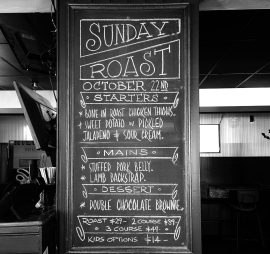 SUNDAY
ROAST
OCTOBER 22ND
STARTERS
* BONE IN ROAST CHICKEN THIGHS.
* SWEET POTATO W PICKLED
JALAPENO & SOUR CREAM.
MAINS
* STUFFED PORK BELLY.
* LAMB BACKSTRAP.
DESSERT
* DOUBLE CHOCOLATE BROWNIE.
ROAST $29- 2 COURSE $39-
3 COURSE $49-
KIDS OPTIONS $14-